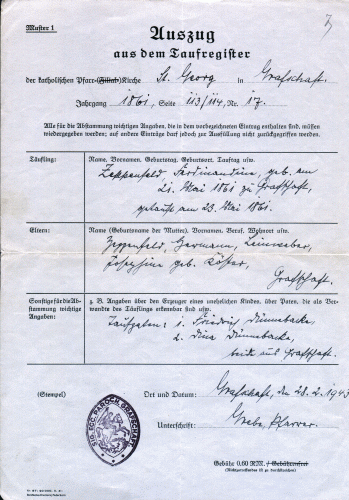 Muster 1
Auszug
aus dem Taufregister
der katholischen Pfarr-(Filial-)Kirche St. Georg in Grafschaft.
Jahrgang 1861, Seite 113/114, Nr. 17.
Alle für die Abstammung wichtigen Angaben, die in dem vorbezeichneten Eintrag enthalten sind, müssen
wiedergegeben werden; auf andere Einträge darf jedoch zur Ausfüllung nicht zurückgegriffen werden.
Täufling:
Name, Vornamen, Geburtstag, Geburtsort, Tauftag usw.
Zeppenfeld, Ferdinandina, geb. am
21. Mai 1861 zu Grafschaft,
getauft am 23. Mai 1861.
Eltern:
Name (Geburtsname der Mutter), Vornamen, Beruf, Wohnort usw.
Zeppenfeld, Hermann,
Josephina geb.
Grafschaft.
Sonstige für die Abstammung
wichtige
Angaben:
z. B. Angaben über den Erzeuger eines unehelichen Kindes, über Paten, die als Verwandte
des Täuflings erkennbar sind usw.
Taufpaten: 1. Friedrich Dünnebacke
2. Dina Dünnebacke
beide aus Grafschaft.
(Stempel)
Ort und Datum: Grafschaft, den 28. 2. 1943
Unterschrift: Grebe, Pfarrer.
Gebühr 0,60 RM. / Gebührenfrei
(Nichtzutreffendes ist zu durchstreichen)